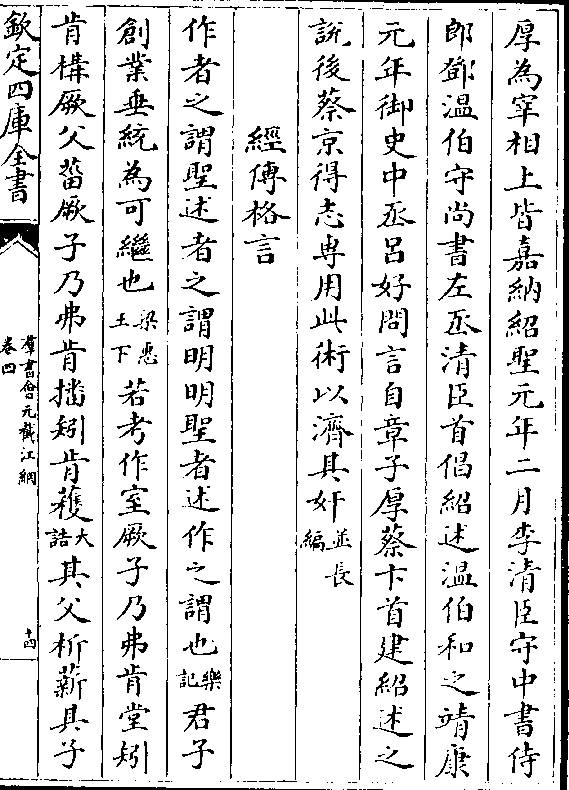 厚為宰相上皆嘉納紹聖元年二月李清臣守中書侍
郎鄧温伯守尚書左丞清臣首倡紹述温伯和之靖康
元年御史中丞吕好問言自章子厚蔡卞首建紹述之
說後蔡京得志専用此術以濟其奸並長編
經傳格言
作者之謂聖述者之謂明明聖者述作之謂也樂記君子
創業垂統為可繼也梁惠王下若考作室厥子乃弗肯堂矧
肯構厥父菑厥子乃弗肯播矧肯穫大誥其父析薪其子
欽定四庫全書
羣書會元截江網
卷四
十四